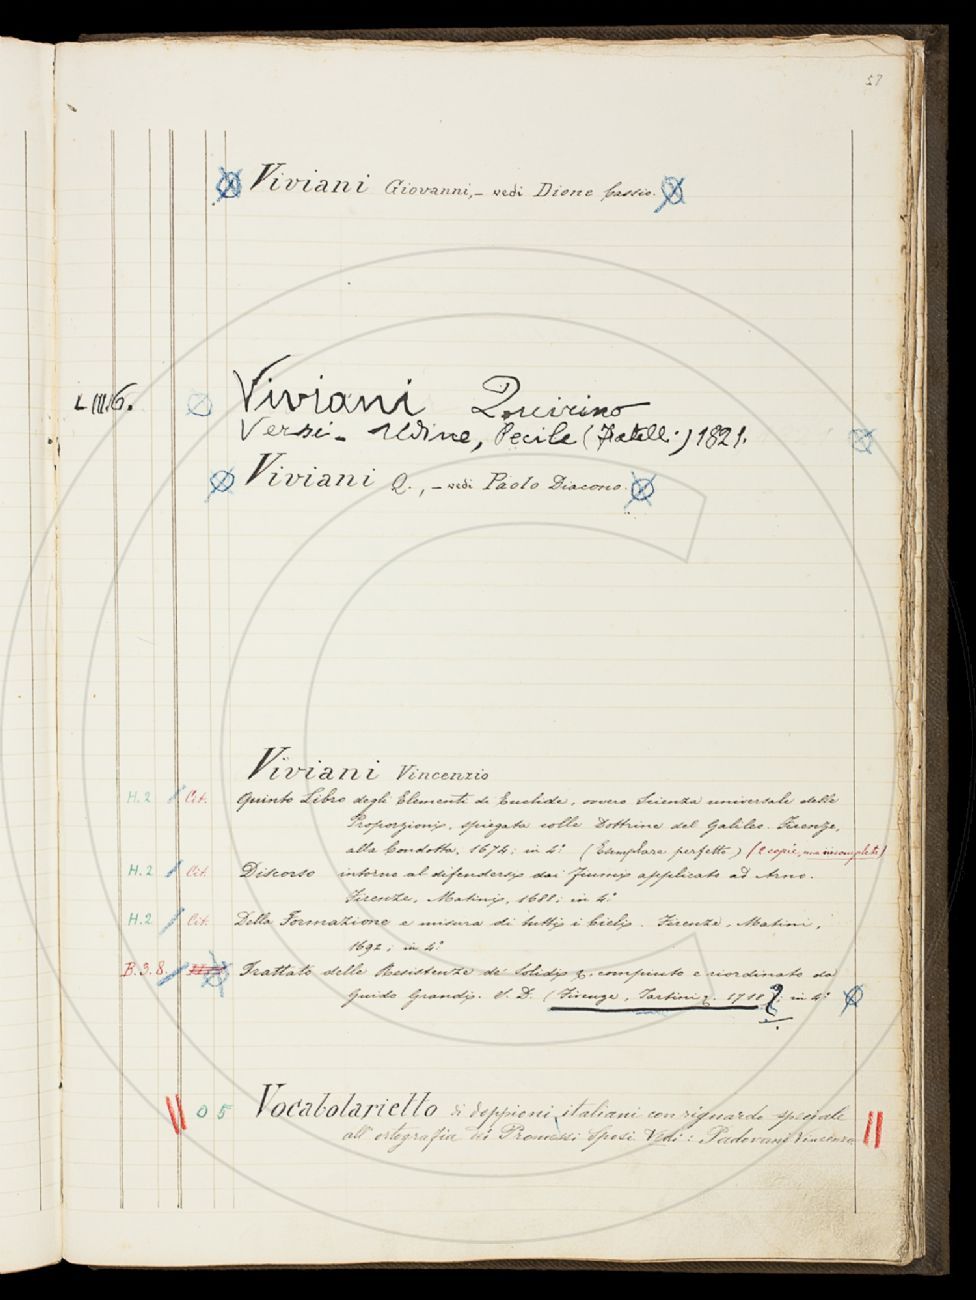 57
Viviani Giovanni,- vedi Dione Cassio.
L III. 6.
Viviani Quirino
Versi - Udine, Pecile (Fratelli) 1821.
Viviani Q., - vedi Paolo Diacono.
Viviani Vincenzio
H. 2 Cit. Quinto Libro degli Elementi di Euclide, ovvero Scienza universale delle
Proporzioni, spiegata colle Dottrine del Galileo. Firenze,
alla Condotta, 1674; in 4° (Esemplare perfetto) (2 copie, ma incomplete)
H. 2 Cit. Discorso intorno al difendersi dai Fiumi applicato ad Arno.
Firenze, Matini, 1688; in 4°
H. 2 Cit. Della Formazione e misura di tutti i Cieli. Firenze, Matini,
1692; in 4°
B. 9. 8. Trattato delle Resistenze de' Solidi &. compiuto e riordinato da
Guido Grandi. S. D. (Firenze, Tartini &. 1718 ? in 4°
05 Vocabolarietto di doppioni italiani con riguardo speciale
all' ortografia dei Promessi Sposi Vedi: Padovani Vincenzo